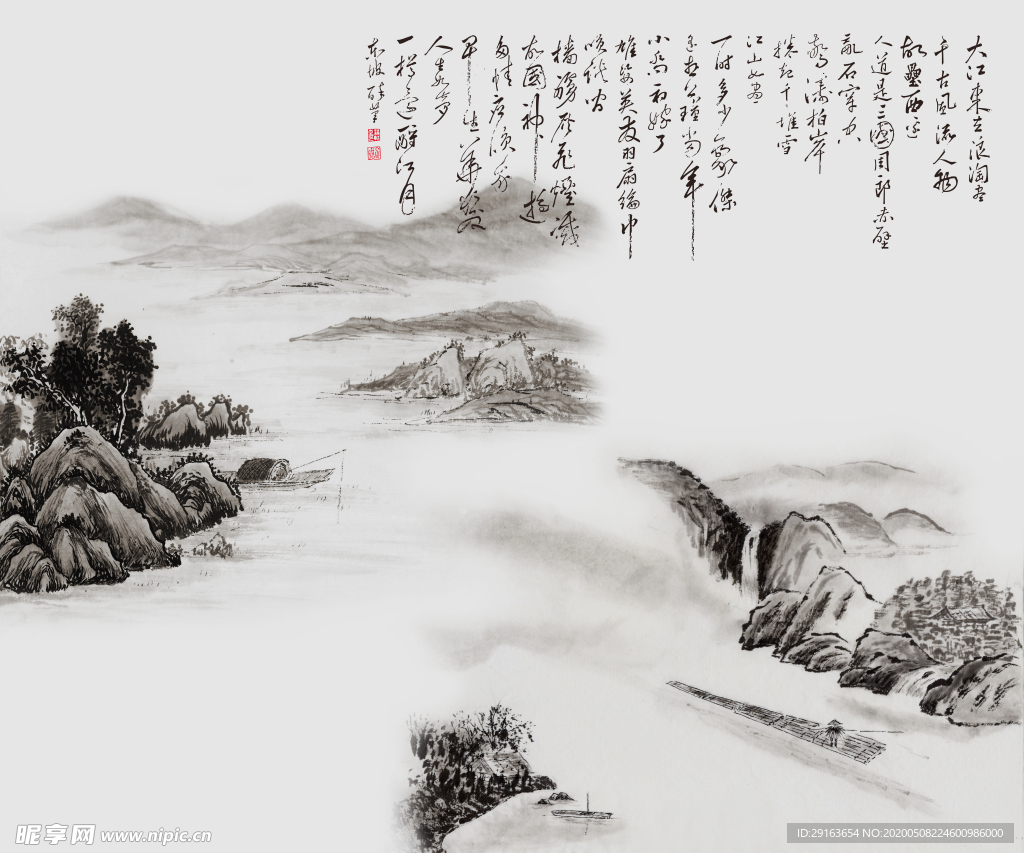 大江東去浪淘盡
千古風流人物
故壘西邊
人道是三國周郎赤壁
亂石穿空
驚濤拍岸
捲起千堆雪
江山如畫
一时多少豪傑
遥想公瑾當年
小喬初嫁了
雄姿英发羽扇綸巾
笑談間
檣艣灰飛煙滅
故國神遊
多情應笑我
早生華髮
人生如夢
一樽還酹江月
東坡醉筆
昵享网 www.nipic.cn
ID:29163654 NO:20200508224600986000